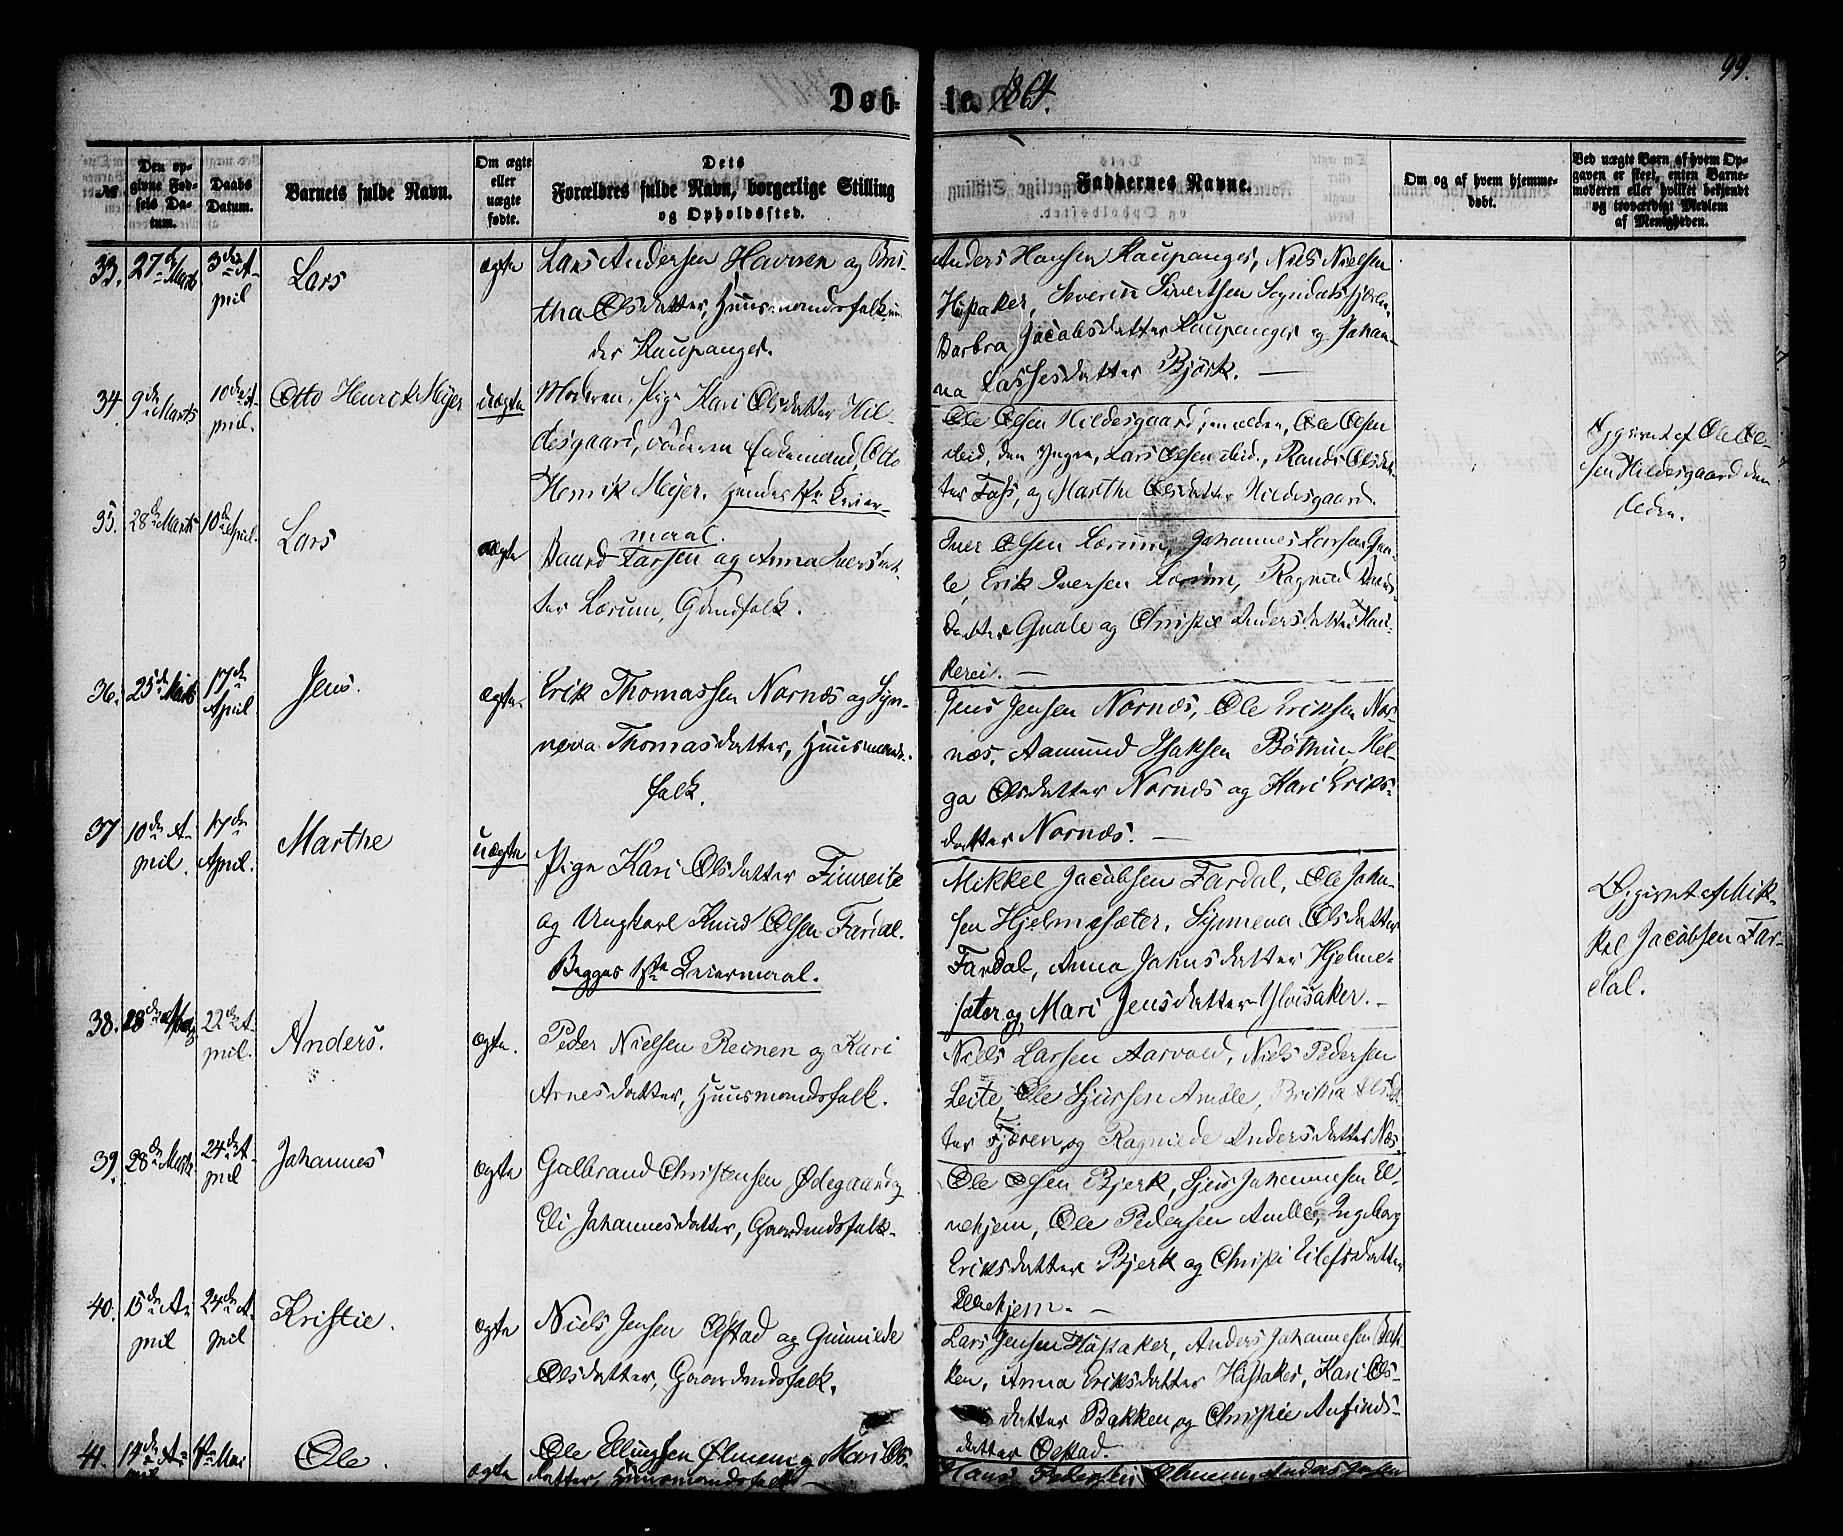 99.
Døb- te. 1864.
№
Den op-
givne Fød-
sels Da-
tum.
Daabs
Datum.
Barnets fulde Navn.
Om ægte
eller
uægte
fødte.
Dets
Forældres fulde Navn, borgerlige Stilling
og Opholdssted.
Faddernes Navne.
Om og af hvem hjemme-
døbt.
Ved uægte Børn af hvem Op-
gaven er skeet, enten Barne-
moderen eller hvilket bekjendt
og troværdigt Medlem
af Menigheden.
33. 27de Marts 3die A-
pril
Lars
ægte
Lars Andersen Havnen og Bri-
tha Olsdatter, Huusmandsfolk un-
der Kaupanger.
Anders Hansen Kaupanger, Niels Nielsen
Husaker, Severin Sivertsen Sogndalsfjæren,
Barbra Jacobsdatter Kaupanger og Johan-
na Lassesdatter Bjørk. —
34. 9de Marts 10de A-
pril.
Otto Henrik Meyer
uægte
Moderen, Pige Kari Olsdatter Hil-
desgaard, Faderen Enkemand Otto
Henrik Meyer. hendes 1ste Leier-
maal.
Ole Olsen Hildesgaard, den ældre, Ole Olsen
ibid, den Yngre, Lars Olsen ibid., Randi Olsdat-
ter Foss, og Marthe Olsdatter Hildesgaard.
Opgivet af Ole Ol-
sen Hildesgaard den
ældre.
35. 28de Marts 10de April.
Lars
ægte
Baard Larsen og Anna Iversdat-
ter Lorum, Gaardfolk.
Iver Olsen Lorum, Johannes Larsen Qua-
le, Erik Iversen Lorum, Ragnild Knuds-
datter Quale og Christie Andersdatter Hau-
kerei. —
36. 25de Marts 17de
April
Jens.
ægte.
Erik Thomassen Nornæs og Syn-
neva Thomasdatter, Huusmands-
folk.
Jens Jensen Nornæs, Ole Eriksen Nor-
næs, Aamund Isaksen Bøthun, Hel-
ga Olsdatter Nornæs og Kari Eriks-
datter Nornæs. —
37 10de A-
pril. 17de
April.
Marthe
uægte
Pige Kari Olsdatter Fimreite
og Ungkarl Knud Olsen Fardal.
Begges 1ste Leiermaal.
Mikkel Jacobsen Fardal, Ole John-
sen Hjelmesæter, Synneva Olsdatter
Fardal, Anna Johnsdatter Hjelme-
sæter og Mari Jensdatter Ylvisaker. —
Opgivet af Mik-
kel Jacobsen Far-
dal.
38. 22de A-
pril.
Anders.
ægte.
Peder Nielsen Reinen og Kari
Arnesdatter, Huusmandsfolk.
Niels Larsen Aarvold, Niels Pedersen
Leite, Ole Sjursen Amble, Brittha Olsdat-
ter Fjæren, og Ragnilde Andersdatter Næs
39. 28de Marts 24de A-
pril
Johannes
ægte
Gulbrand Christensen Ødegaard og
Eli Johannesdatter, Gaardmandsfolk.
Ole Olsen Bjerk, Sjur Johannesen El-
nehjem, Ole Pedersen Amble, Ingeborg
Eriksdatter Bjerk og Christi Eilefsdatter
Elnehjem. —
40. 15de A-
pril 24de A-
pril
Kristie.
ægte
Niels Jensen Olstad og Gunnilde
Olsdatter, Gaardmandsfolk.
Lars Jensen Husaker, Anders Johannesen Bak-
ken, Anna Eriksdatter Husaker, Kari Ols-
datter Bakken og Christie Anfinds-
datter Olstad.
41. 14de A-
pril 1ste Mai
Ole.
ægte
Ole Ellingsen Ølmem og Mari Ols-
datter, Huusmandsfolk
Hans Pedersen Ølmem, Anders Jensen